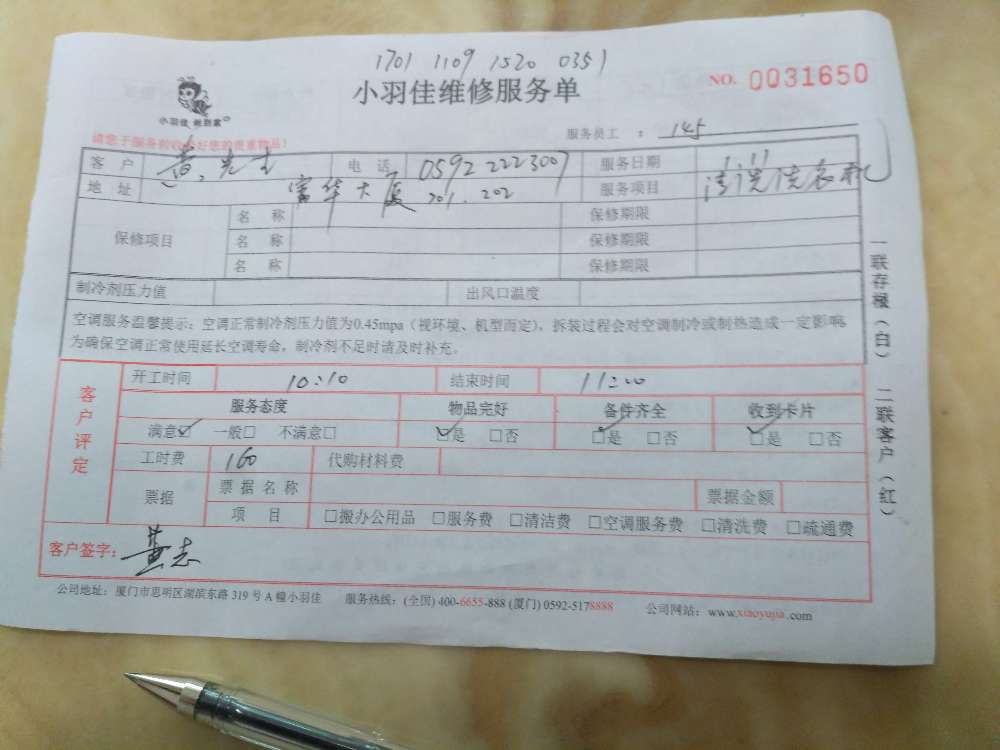 1701 1109 1520 0351
小羽佳维修服务单
NO. 0031650
小羽佳
请您于服务前收好您的贵重物品!
服务员工 : 145
客户 黄先生 电话 0592 2223007 服务日期 1.11
地址 富华大厦 201.202 服务项目 清洗洗衣机
保修项目 名称 保修期限
名称 保修期限
名称 保修期限
制冷剂压力值 出风口温度
空调服务温馨提示：空调正常制冷剂压力值为0.45mpa（视环境、机型而定），拆装过程会对空调制冷或制热造成一定影响
为确保空调正常使用延长空调寿命，制冷剂不足时请及时补充。
客户评定
开工时间 10:10 结束时间 11:00
服务态度 物品完好 备件齐全 收到卡片
满意☑ 一般□ 不满意□ ☑是 □否 ☑是 □否 ☑是 □否
工时费 160 代购材料费
票据 票据名称 票据金额
项目 □搬办公用品 □服务费 □清洁费 □空调服务费 □清洗费 □疏通费
客户签字： 黄志
公司地址：厦门市思明区湖滨东路 319 号 A 幢小羽佳 服务热线：(全国) 400-6655-888 (厦门) 0592-5178888 公司网站：www.xiaoyujia.com
一联存根（白） 二联客户（红）